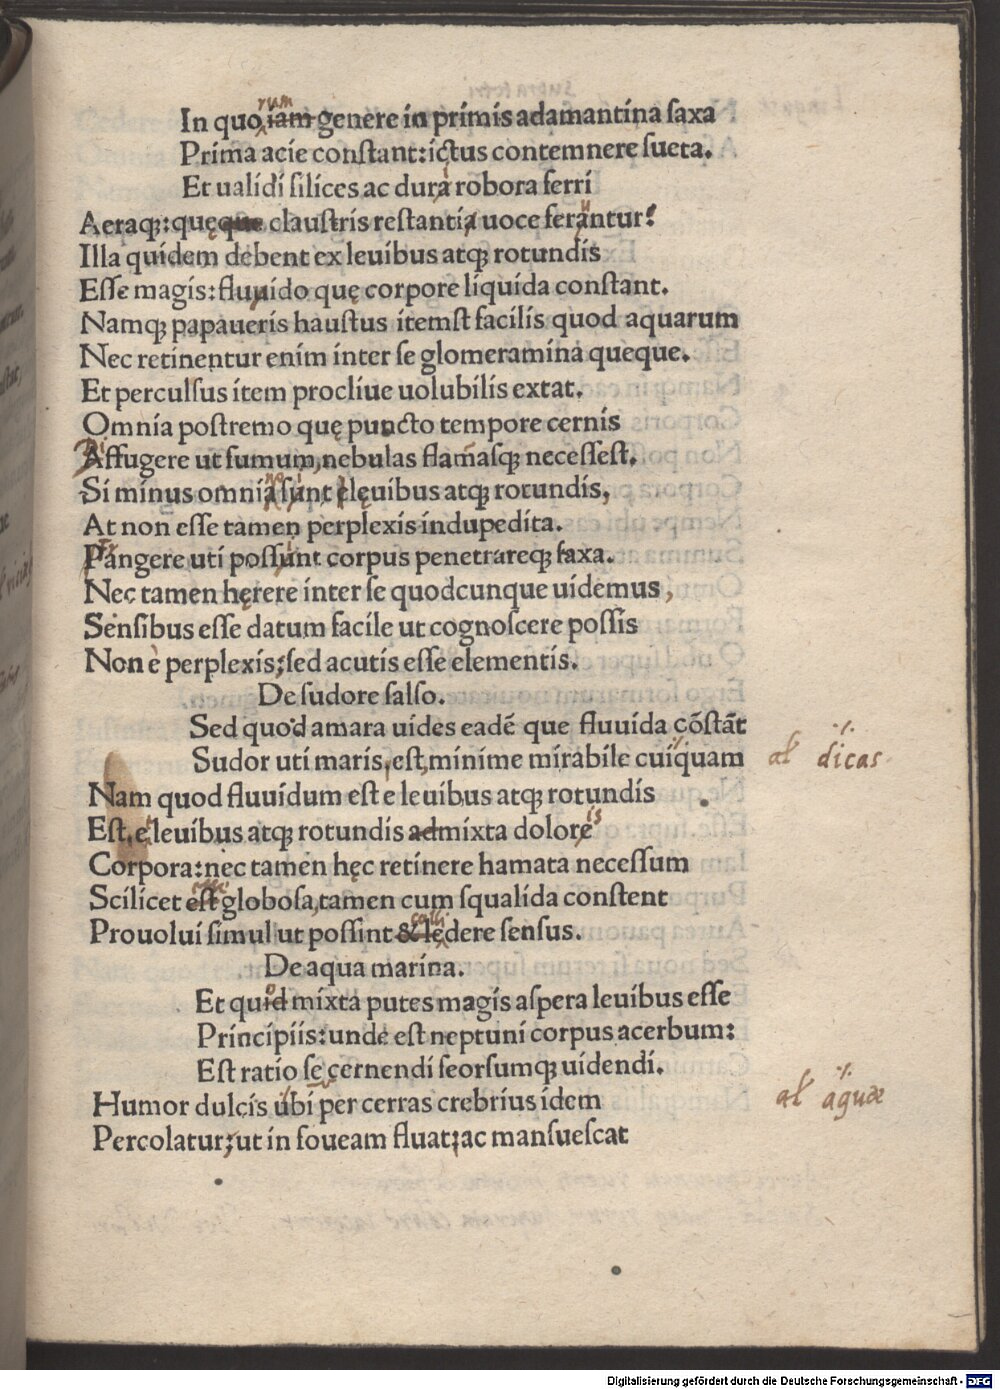 In quo iam genere in primis adamantina ſaxa
rum
Prima acie conſtant: ictus contemnere ſueta.
Et ualidi ſilices ac dura robora ferri
Aeraqꝫ: quę que clauſtris reſtantia uoce ferantur!
Illa quidem debent ex leuibus atqꝫ rotundis
Eſſe magis: fluuido quę corpore liquida conſtant.
Namqꝫ papaueris hauſtus itemſt facilis quod aquarum
Nec retinentur enim inter ſe glomeramina queque.
Et perculſus item procliue uolubilis extat.
Omnia poſtremo quę puncto tempore cernis
Affugere ut fumum, nebulas flamaſqꝫ neceſſeſt.
Si minus omnia ſunt elęuibus atqꝫ rotundis,
At non eſſe tamen perplexis indupedita.
Pangere uti poſſunt corpus penetrareqꝫ ſaxa.
Nec tamen hęrere inter ſe quodcunque uidemus,
Senſibus eſſe datum facile ut cognoſcere poſſis
Non è perplexis; ſed acutis eſſe elementis.
De ſudore ſalſo.
Sed quod amara uides eadē que fluuida cōſtāt
Sudor uti maris, eſt, minime mirabile cuiquam
al dicas
Nam quod fluuidum eſt e leuibus atqꝫ rotundis
Eſt, e leuibus atqꝫ rotundis admixta dolore
is
Corpora: nec tamen hęc retinere hamata neceſſum
Scilicet eſt globoſa, tamen cum ſqualida conſtent
eſſe
Prouolui ſimul ut poſſint & lędere ſenſus.
De aqua marina.
Et quid mixta putes magis aſpera leuibus eſſe
Principiis: unde eſt neptuni corpus acerbum:
Eſt ratio ſecernendi ſeorſumqꝫ uidendi.
Humor dulcis ubi per cerras crebrius idem
al aquae
Percolatur; ut in foueam fluat; ac manſueſcat
Digitalisierung gefördert durch die Deutsche Forschungsgemeinschaft - DFG